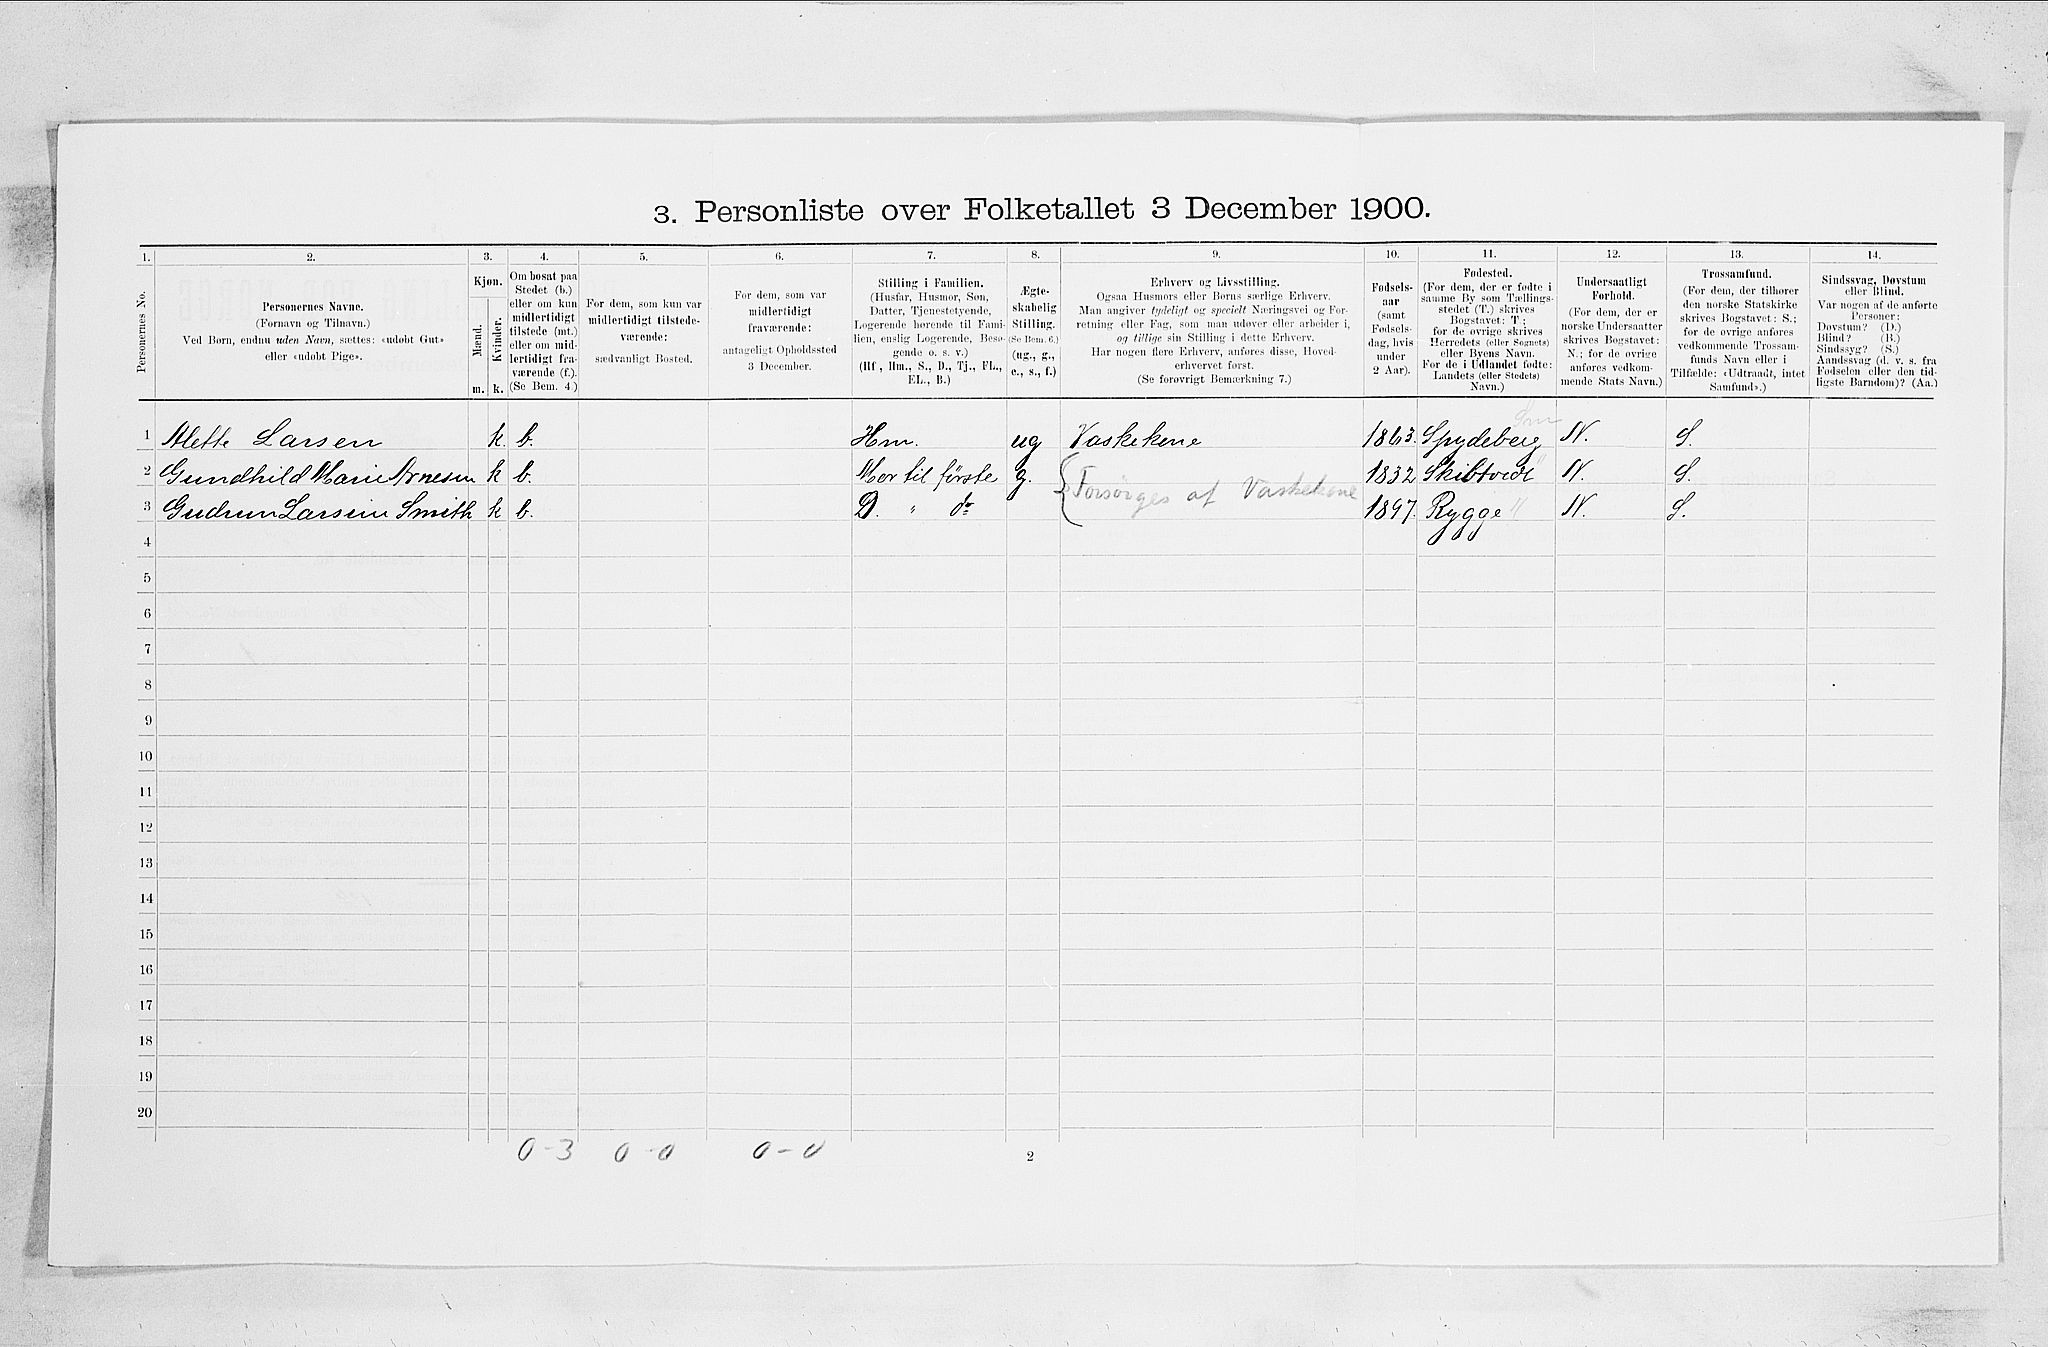 3. Personliste over Folketallet 3 December 1900.
1. 2. 3. 4. 5. 6. 7. 8. 9. 10. 11. 12. 13. 14.
Personernes No.
Personernes Navne.
(Fornavn og Tilnavn.)
Ved Børn, endnu uden Navn, sættes: «udøbt Gut»
eller «udøbt Pige».
Kjøn.
Mænd.
Kvinder.
m. k.
Om bosat paa
Stedet (b.)
eller om kun
midlertidigt
tilstede (mt.)
eller om mid-
lertidigt fra-
værende (f.).
(Se Bem. 4.)
For dem, som kun var
midlertidigt tilstede-
værende:
sædvanligt Bosted.
For dem, som var
midlertidigt
fraværende:
antageligt Opholdssted
3 December.
Stilling i Familien.
(Husfar, Husmor, Søn,
Datter, Tjenestetyende,
Logerende hørende til Fami-
lien, enslig Logerende, Besø-
gende o. s. v.)
(Hf., Hm., S., D., Tj., FL.,
EL., B.)
Ægte-
skabelig
Stilling.
(Se Bem. 6.)
(ug., g.,
e., s., f.)
Erhverv og Livsstilling.
Ogsaa Husmors eller Børns særlige Erhverv.
Man angiver tydeligt og specielt Næringsvei og For-
retning eller Fag, som man udøver eller arbeider i,
og tillige sin Stilling i dette Erhverv.
Har nogen flere Erhverv, anføres disse, Hoved-
erhvervet først.
(Se forøvrigt Bemærkning 7.)
Fødsels-
aar
(samt
Fødsels-
dag, hvis
under
2 Aar).
Fødested.
(For dem, der er fødte i
samme By som Tællings-
stedet (T.) skrives
Bogstavet: T.;
for de øvrige skrives
Herredets (eller Sognets)
eller Byens Navn.
For de i Udlandet fødte:
Landets (eller Stedets)
Navn.)
Undersaatligt
Forhold.
(For dem, der er
norske Undersaatter
skrives Bogstavet:
N.; for de øvrige
anføres vedkom-
mende Stats Navn.)
Trossamfund.
(For dem, der tilhører
den norske Statskirke
skrives Bogstavet: S.;
for de øvrige anføres
vedkommende Trossam-
funds Navn eller i
Tilfælde: «Udtraadt, intet
Samfund».)
Sindssvag, Døvstum
eller Blind.
Var nogen af de anførte
Personer:
Døvstum? (D.)
Blind? (B.)
Sindssyg? (S.)
Aandssvag (d. v. s. fra
Fødselen eller den tid-
ligste Barndom)? (Aa.)
1 Alette Larsen k. b. Hm. ug Vaskekone 1863. Spydeberg N. S.
2 Gundhild Marie Arnesen k b. Mor til første g. 1832 Skibtvedt N. S.
Forsørges af Vaskekone
3 Gudrun Larsine Smith k b. D. " do 1897. Rygge " N. S.
4
5
6
7
8
9
10
11
12
13
14
15
16
17
18
19
20
0-3 0-0 0-0
2